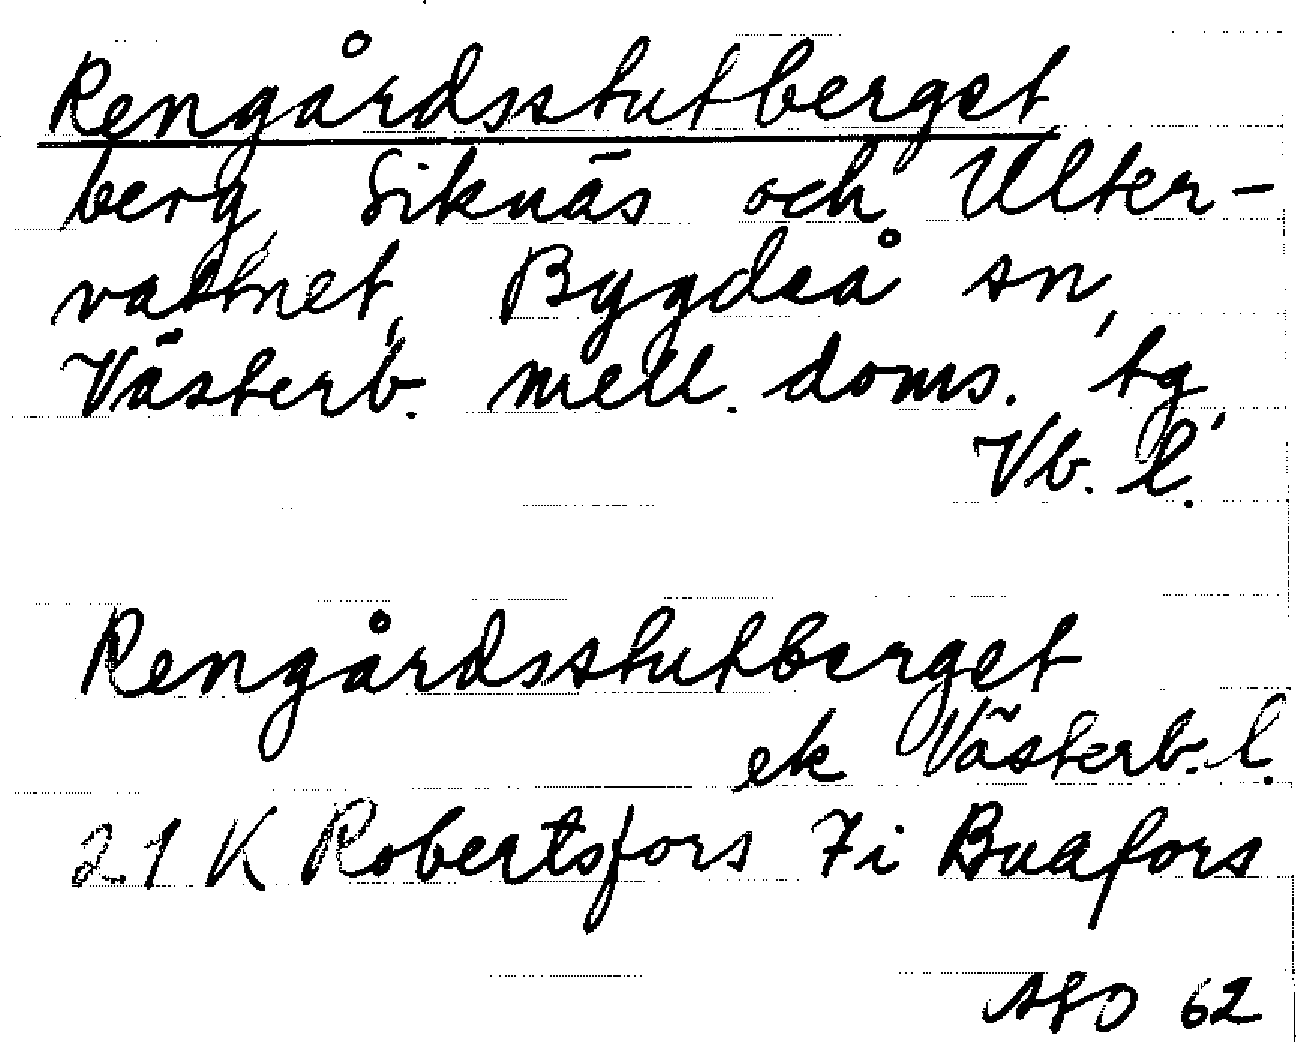 Rengårdsstutberget
berg, Siknäs och Ulter-
vattnet, Bygdeå sn,
Västerb. mell. doms. tg,
Vb. l.
Rengårdsstutberget
ek Västerb. l.
21 K Robertsfors 7i Buafors
62